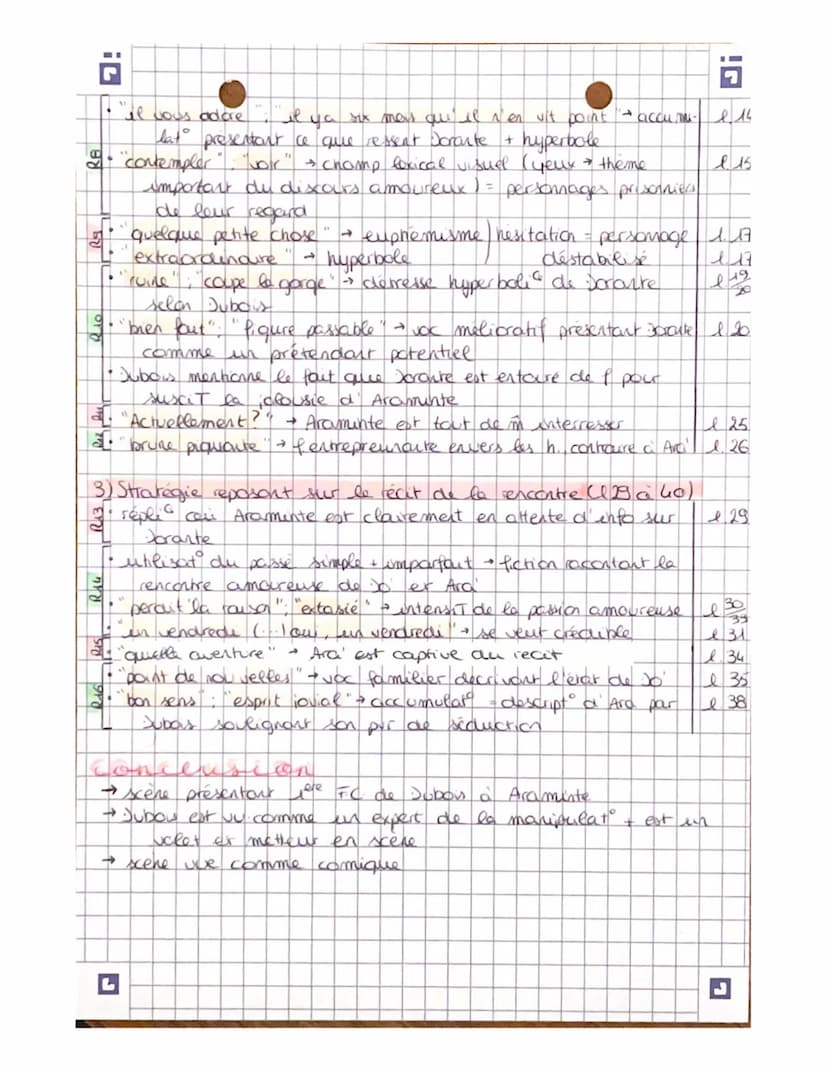 • "il vous adore" ; "il y a six mois qu'il n'en vit point" → accumu- l. 14
lat° présentant ce que ressent Dorante + hyperbole
R8 • "contempler" ; "voir" → champ lexical visuel (yeux → thème l 15
important du discours amoureux) = personnages prisonniers
de leur regard
R9 • "quelque petite chose" → euphémisme / hésitation = personnage l. 17
• "extraordinaire" → hyperbole / déstabilisé l 17
• "ruine" ; "coupe la gorge" → détresse hyperboliq de Dorante l 19/20
selon Dubois
R10 • "bien fait" ; "figure passable" → voc mélioratif présentant Dorante l 20
comme un prétendant potentiel
• Dubois mentionne le fait que Dorante est entouré de f pour
susciT la jalousie d'Araminte
R11 • "Actuellement ?" → Araminte est tout de m̂ interresser l 25
R12 • "brune piquante" → f entreprenante envers les h, contraire à Ara' l. 26
3) Stratégie reposant sur le récit de la rencontre (l 29 à 40)
R13 • répliq où Araminte est clairement en attente d'info sur l. 29
Dorante
• utilisat° du passé simple + imparfait → fiction racontant la
R14 rencontre amoureuse de Do' et Ara'
• "perdit la raison" ; "extasié" → intensiT de la passion amoureuse l 30/33
• "un vendredi (...) oui, un vendredi" → se veut crédible l 31
R15 • "quelle aventure" → Ara' est captive du récit l. 34
• "point de nouvelles" → voc familier décrivant l'état de Do' l 35
R16 • "bon sens" ; "esprit jovial" → accumulat° = descript° d'Ara par l 38
Dubois soulignant son pvr de séduction
Conclusion
→ scène présentant 1ère FC de Dubois à Araminte
→ Dubois est vu comme un expert de la manipulat° + est un
valet et metteur en scène
→ scène vue comme comique